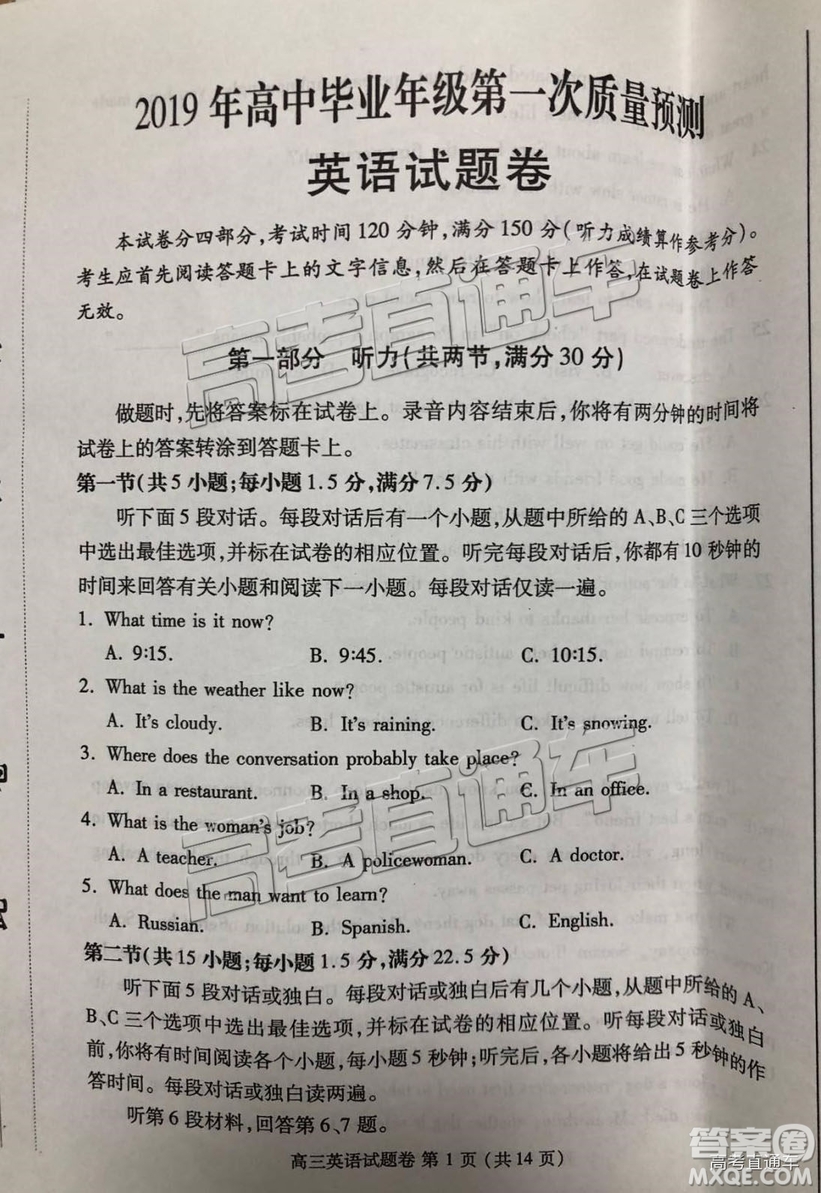 2019 年高中毕业年级第一次质量预测
英语试题卷
本试卷分四部分,考试时间 120 分钟,满分 150 分(听力成绩算作参考分)。
考生应首先阅读答题卡上的文字信息,然后在答题卡上作答,在试题卷上作答
无效。
第一部分 听力(共两节,满分 30 分)
做题时,先将答案标在试卷上。录音内容结束后,你将有两分钟的时间将
试卷上的答案转涂到答题卡上。
第一节(共 5 小题;每小题 1.5 分,满分 7.5 分)
听下面 5 段对话。每段对话后有一个小题,从题中所给的 A、B、C 三个选项
中选出最佳选项,并标在试卷的相应位置。听完每段对话后,你都有 10 秒钟的
时间来回答有关小题和阅读下一小题。每段对话仅读一遍。
1. What time is it now?
A. 9:15. B. 9:45. C. 10:15.
2. What is the weather like now?
A. It's cloudy. B. It's raining. C. It's snowing.
3. Where does the conversation probably take place?
A. In a restaurant. B. In a shop. C. In an office.
4. What is the woman's job?
A. A teacher. B. A policewoman. C. A doctor.
5. What does the man want to learn?
A. Russian. B. Spanish. C. English.
第二节(共 15 小题;每小题 1.5 分,满分 22.5 分)
听下面 5 段对话或独白。每段对话或独白后有几个小题,从题中所给的 A、
B、C 三个选项中选出最佳选项,并标在试卷的相应位置。听每段对话或独白
前,你将有时间阅读各个小题,每小题 5 秒钟;听完后,各小题将给出 5 秒钟的作
答时间。每段对话或独白读两遍。
听第 6 段材料,回答第 6、7 题。
高三英语试题卷 第 1 页 (共 14 页)
高考直通车
高考直通车
答案圈
MXQE.COM
高考直通车